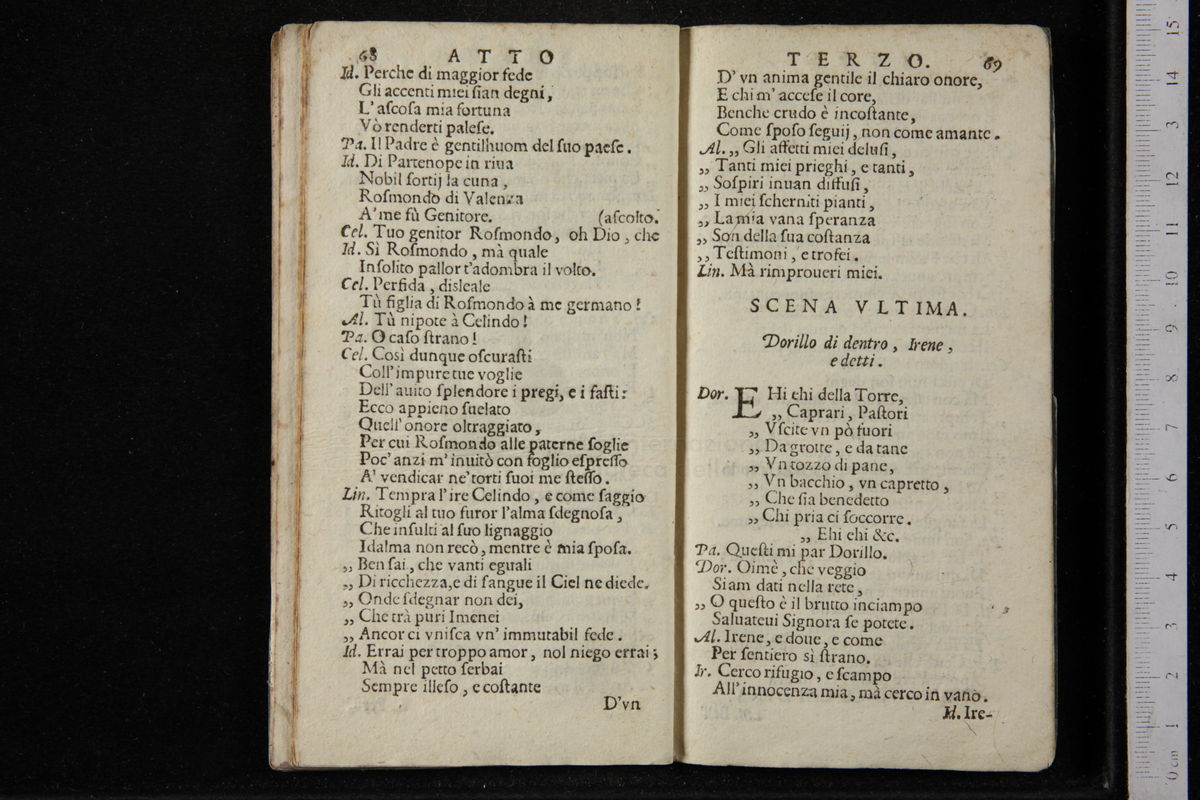 68 ATTO
Id. Perche di maggior fede
Gli accenti miei ſian degni,
L' aſcoſa mia fortuna
Vò renderti paleſe.
Pa. Il Padre è gentilhuom del ſuo paeſe.
Id. Di Partenope in riua
Nobil ſortij la cuna,
Roſmondo di Valenza
A' me fù Genitore. (aſcolto.
Cel. Tuo genitor Roſmondo, oh Dio, che
Id. Sì Roſmondo, mà quale
Inſolito pallor t'adombra il volto.
Cel. Perfida, disleale
Tù figlia di Roſmondo à me germano!
Al. Tù nipote à Celindo!
Pa. O caſo ſtrano!
Cel. Così dunque oſcuraſti
Coll' impure tue voglie
Dell' auito ſplendore i pregi, e i faſti:
Ecco appieno ſuelato
Quell' onore oltraggiato,
Per cui Roſmondo alle paterne ſoglie
Poc' anzi m' inuitò con foglio eſpreſſo
A' vendicar ne' torti ſuoi me ſteſſo.
Lin. Tempra l' ire Celindo, e come ſaggio
Ritogli al tuo furor l'alma ſdegnoſa,
Che inſulti al ſuo lignaggio
Idalma non recò, mentre è mia ſpoſa.
„ Ben ſai, che vanti eguali
„ Di ricchezza, e di ſangue il Ciel ne diede.
„ Onde ſdegnar non dei,
„ Che trà puri Imenei
„ Ancor ci vniſca vn' immutabil fede.
Id. Errai per troppo amor, nol niego errai;
Mà nel petto ſerbai
Sempre illeſo, e coſtante
D'vn
TERZO. 69
D' vn anima gentile il chiaro onore,
E chi m' acceſe il core,
Benche crudo è incoſtante,
Come ſpoſo ſeguij, non come amante.
Al. „ Gli affetti miei deluſi,
„ Tanti miei prieghi, e tanti,
„ Soſpiri inuan diffuſi,
„ I miei ſcherniti pianti,
„ La mia vana ſperanza
„ Son della ſua coſtanza
„ Teſtimoni, e trofei.
Lin. Mà rimproueri miei.
SCENA VLTIMA.
Dorillo di dentro, Irene,
e detti.
Dor. EHi chi della Torre,
„ Caprari, Paſtori
„ Vſcite vn pò fuori
„ Da grotte, e da tane
„ Vn tozzo di pane,
„ Vn bacchio, vn capretto,
„ Che ſia benedetto
„ Chi pria ci ſoccorre.
„ Ehi chi &c.
Pa. Queſti mi par Dorillo.
Dor. Oimè, che veggio
Siam dati nella rete,
„ O queſto è il brutto inciampo
Saluateui Signora ſe potete.
Al. Irene, e doue, e come
Per ſentiero sì ſtrano.
Ir. Cerco rifugio, e ſcampo
All' innocenza mia, mà cerco in vano.
Id. Ire-
0 cm 1 2 3 4 5 6 7 8 9 10 11 12 3 14 15